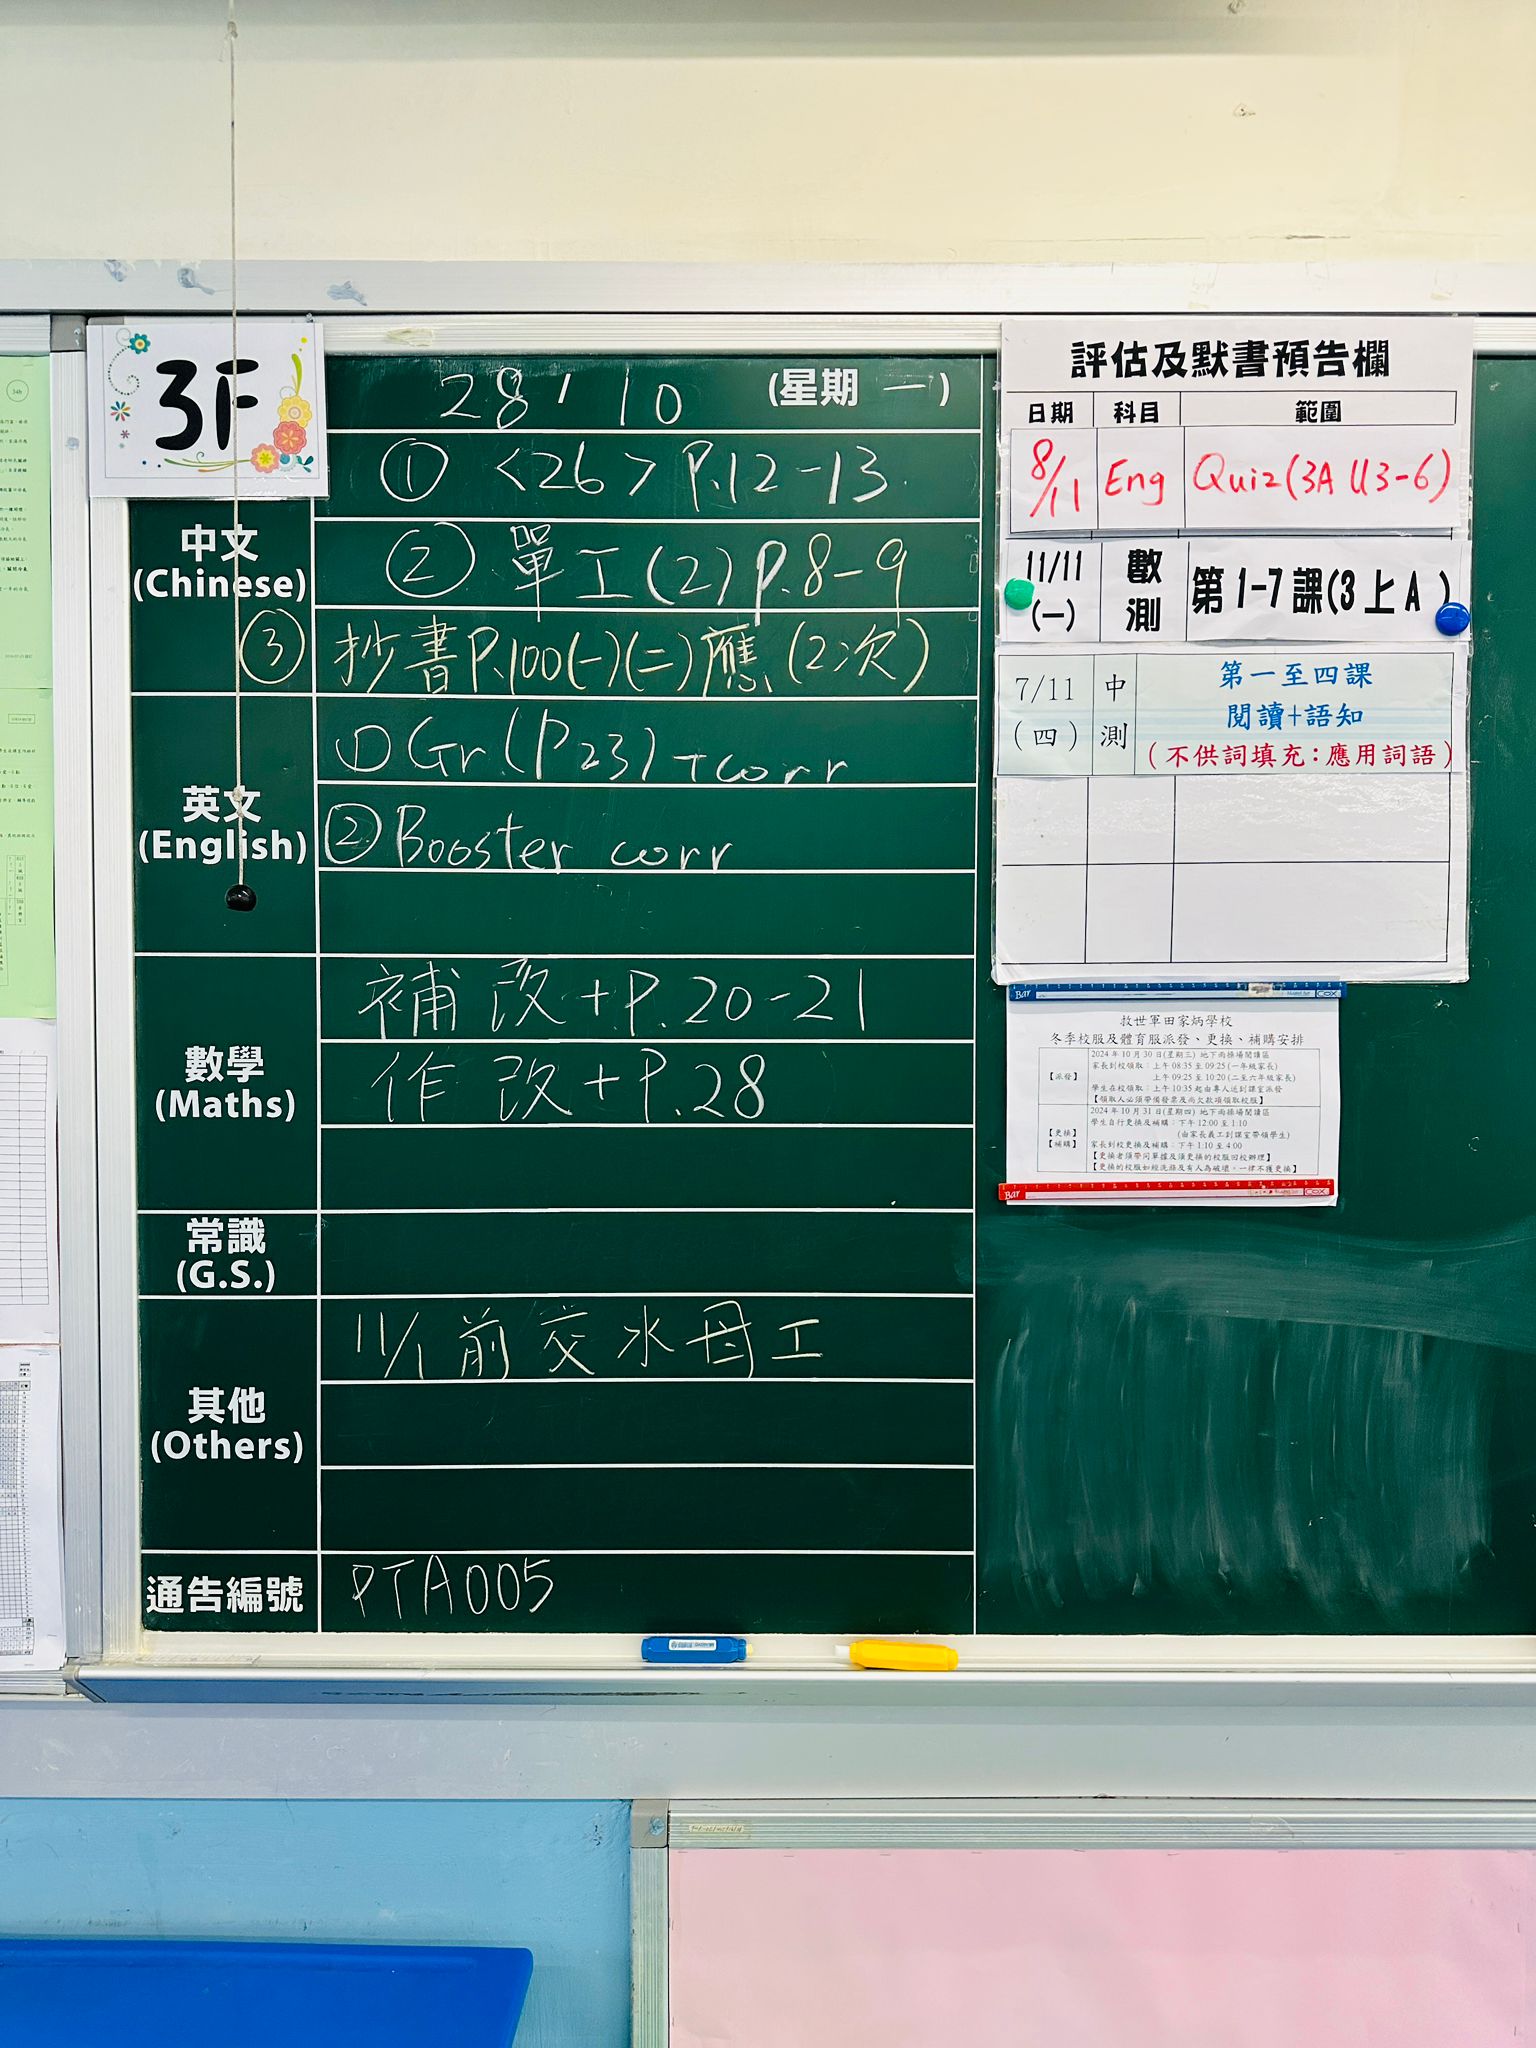 3F
28 / 10 (星期 一 )
中文
(Chinese)
① <26> P.12-13
② 單工(2) P.8-9
③ 抄書P.100(一)(二)應(2次)
英文
(English)
① Gr.(P.23)+corr
② Booster corr
數學
(Maths)
補 改 + P.20-21
作 改 + P.28
常識
(G.S.)
其他
(Others)
11/1 前 交 水 母 工
通告編號
PTA005
評估及默書預告欄
日期 科目 範圍
8/11 Eng Quiz(3A U3-6)
11/11
(一)
數
測
第 1-7 課(3 上 A )
7/11
(四)
中
測
第一至四課
閱讀+語知
(不供詞填充：應用詞語)
Bar COX
救世軍田家炳學校
冬季校服及體育服派發、更換、補購安排
【派發】
2024 年 10 月 30 日(星期三) 地下雨操場閱讀區
家長到校領取：上午 08:35 至 09:25 (一年級家長)
上午 09:25 至 10:20 (二至六年級家長)
學生在校領取：上午 10:35 起由專人送到課室派發
【領取人必須帶備發票及尚欠款項領取校服】
【更換】
【補購】
2024 年 10 月 31 日(星期四) 地下雨操場閱讀區
學生自行更換及補購：下午 12:00 至 1:10
(由家長義工到課室帶領學生)
家長到校更換及補購：下午 1:10 至 4:00
【更換者須帶同單據及須更換的校服回校辦理】
【更換的校服如經洗滌及有人為破壞，一律不獲更換】
Bar COX